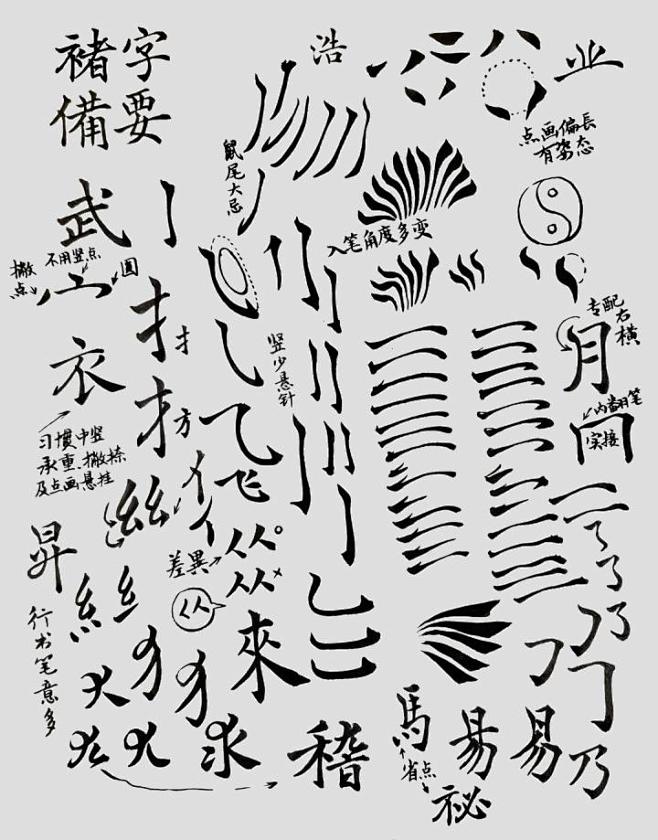 褚字
備要
浩
业
点画偏長
有姿态
鼠尾大忌
入笔角度多变
武
不用竖点
撇点
圆
扌
扌
竖少悬针
专配右横
月
内翻笔
实接
衣
习惯中竖
承重.撇捺
及点画悬挂
方
飞
差異
从
从
昇
行书笔意多
來
稽
馬
省点
易
易
乃
乃
祕